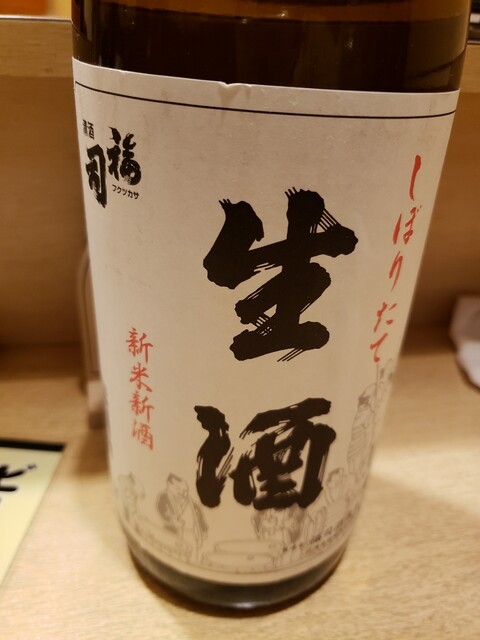 しぼりたて
生酒
新米新酒
清酒
福司
フクツカサ